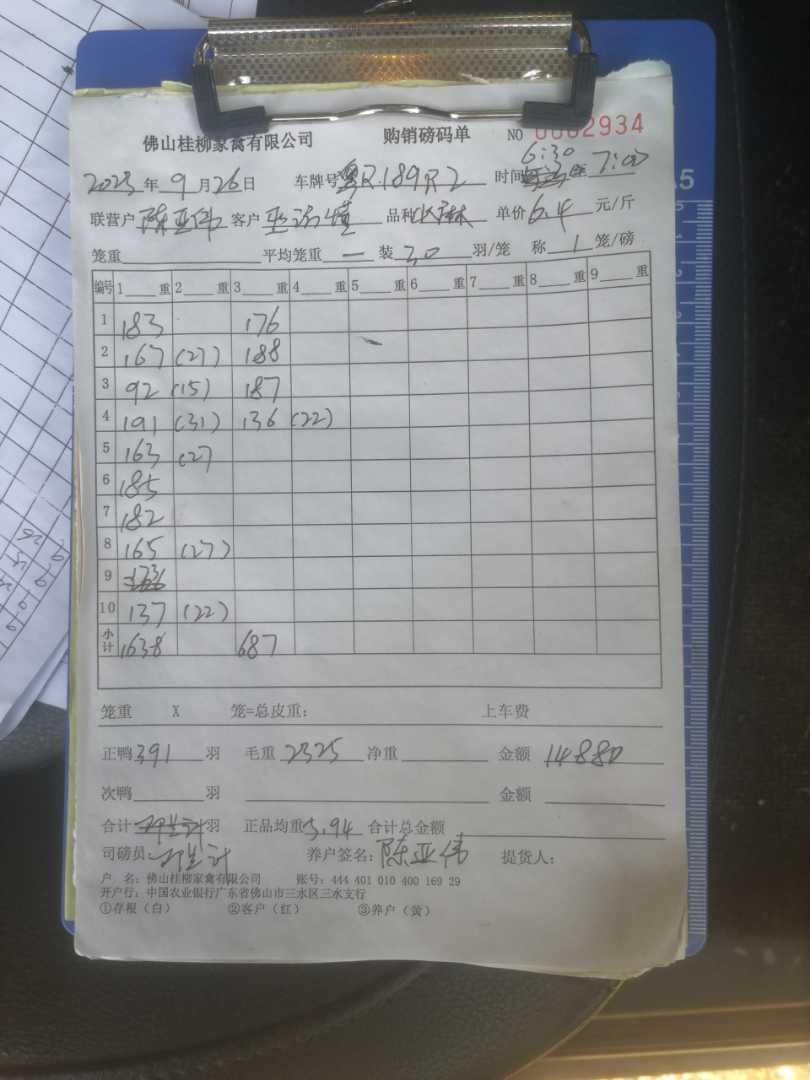 佛山桂柳家禽有限公司 购销磅码单 NO 0002934
2023年9月26日 车牌号粤R189R2 时间 6:30 7:00
联营户陈亚伟 客户 品种 单价6.4元/斤
笼重 平均笼重一装30羽/笼 称1笼/磅
编号 1 重 2 重 3 重 4 重 5 重 6 重 7 重 8 重 9 重
1 183 176
2 167 (27) 188
3 92 (15) 187
4 191 (31) 136 (22)
5 163 (27
6 185
7 182
8 165 (27)
9 173
10 137 (22)
小计 1638 687
笼重 X 笼=总皮重: 上车费
正鸭391羽 毛重2325 净重 金额14880
次鸭 羽 金额
合计 羽 正品均重5.94 合计总金额
司磅员: 养户签名:陈亚伟 提货人:
户 名: 佛山桂柳家禽有限公司 账号: 444 401 010 400 169 29
开户行: 中国农业银行广东省佛山市三水区三水支行
①存根(白) ②客户(红) ③养户(黄)